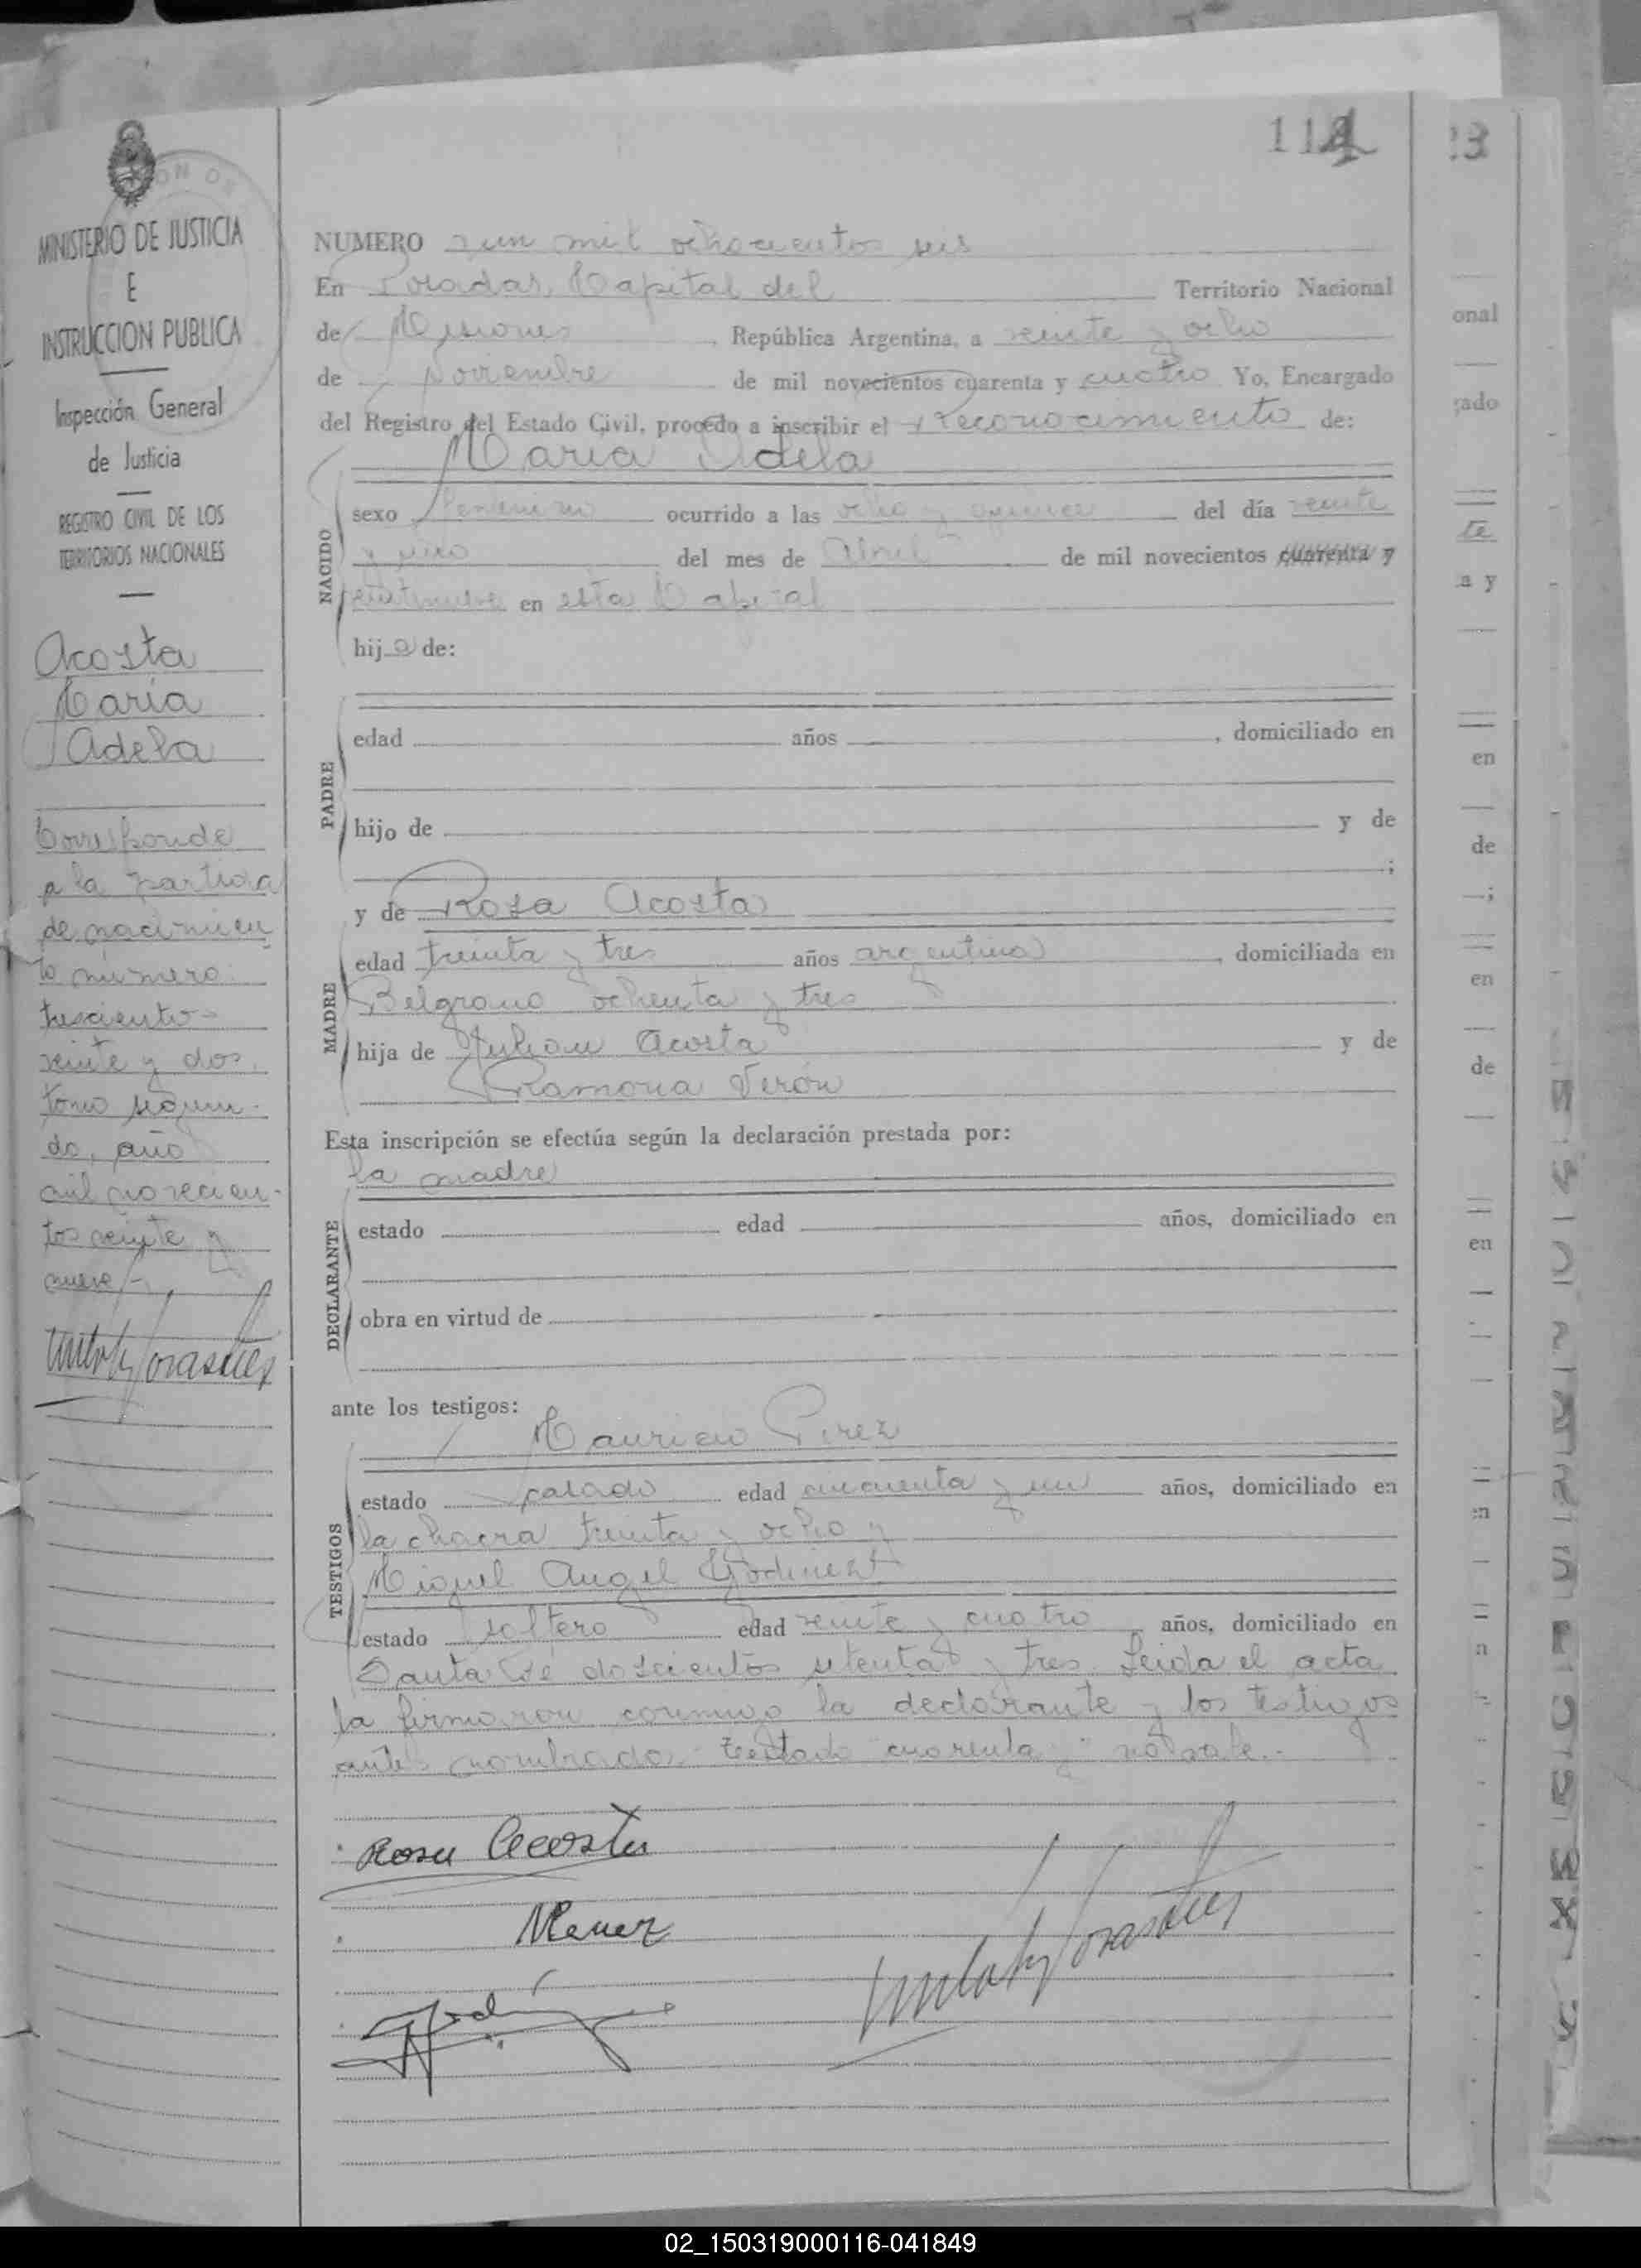 114
MINISTERIO DE JUSTICIA
E
INSTRUCCION PUBLICA
Inspección General
de Justicia
REGISTRO CIVIL DE LOS
TERRITORIOS NACIONALES
Acosta
María
Adela
Corresponde
a la partida
de nacimien
to número
trescientos
veinte y dos,
tomo segun-
do, año
mil novecien-
tos veinte y
nueve.-
NUMERO un mil ochocientos seis
En Posadas, Capital del Territorio Nacional
de Misiones, República Argentina, a veinte y ocho
de Noviembre de mil novecientos cuarenta y cuatro Yo, Encargado
del Registro del Estado Civil, procedo a inscribir el Reconocimiento de:
María Adela
NACIDO
sexo femenino ocurrido a las ocho y quince del día veinte
y uno del mes de Abril de mil novecientos cuarenta y
veintinueve en esta Capital
hija de:
PADRE
edad años , domiciliado en
hijo de y de
;
y de Rosa Acosta
MADRE
edad treinta y tres años argentina, domiciliada en
Belgrano ochenta y tres
hija de Julian Acosta y de
Ramona Verón
Esta inscripción se efectúa según la declaración prestada por:
la madre
DECLARANTE
estado edad años, domiciliado en
obra en virtud de
ante los testigos:
Mauricio Perez
TESTIGOS
estado casado edad cincuenta y un años, domiciliado en
la chacra treinta y ocho y
Miguel Angel Godinez
estado soltero edad veinte y cuatro años, domiciliado en
Santa Fé doscientos setenta y tres. Leida el acta
la firmaron conmigo la declarante y los testigos
antes nombrados. Testado "cuarenta y" no vale.-
Rosa Acosta
23
onal
gado
te
a y
en
de
;
en
de
en
en
n
02_150319000116-041849